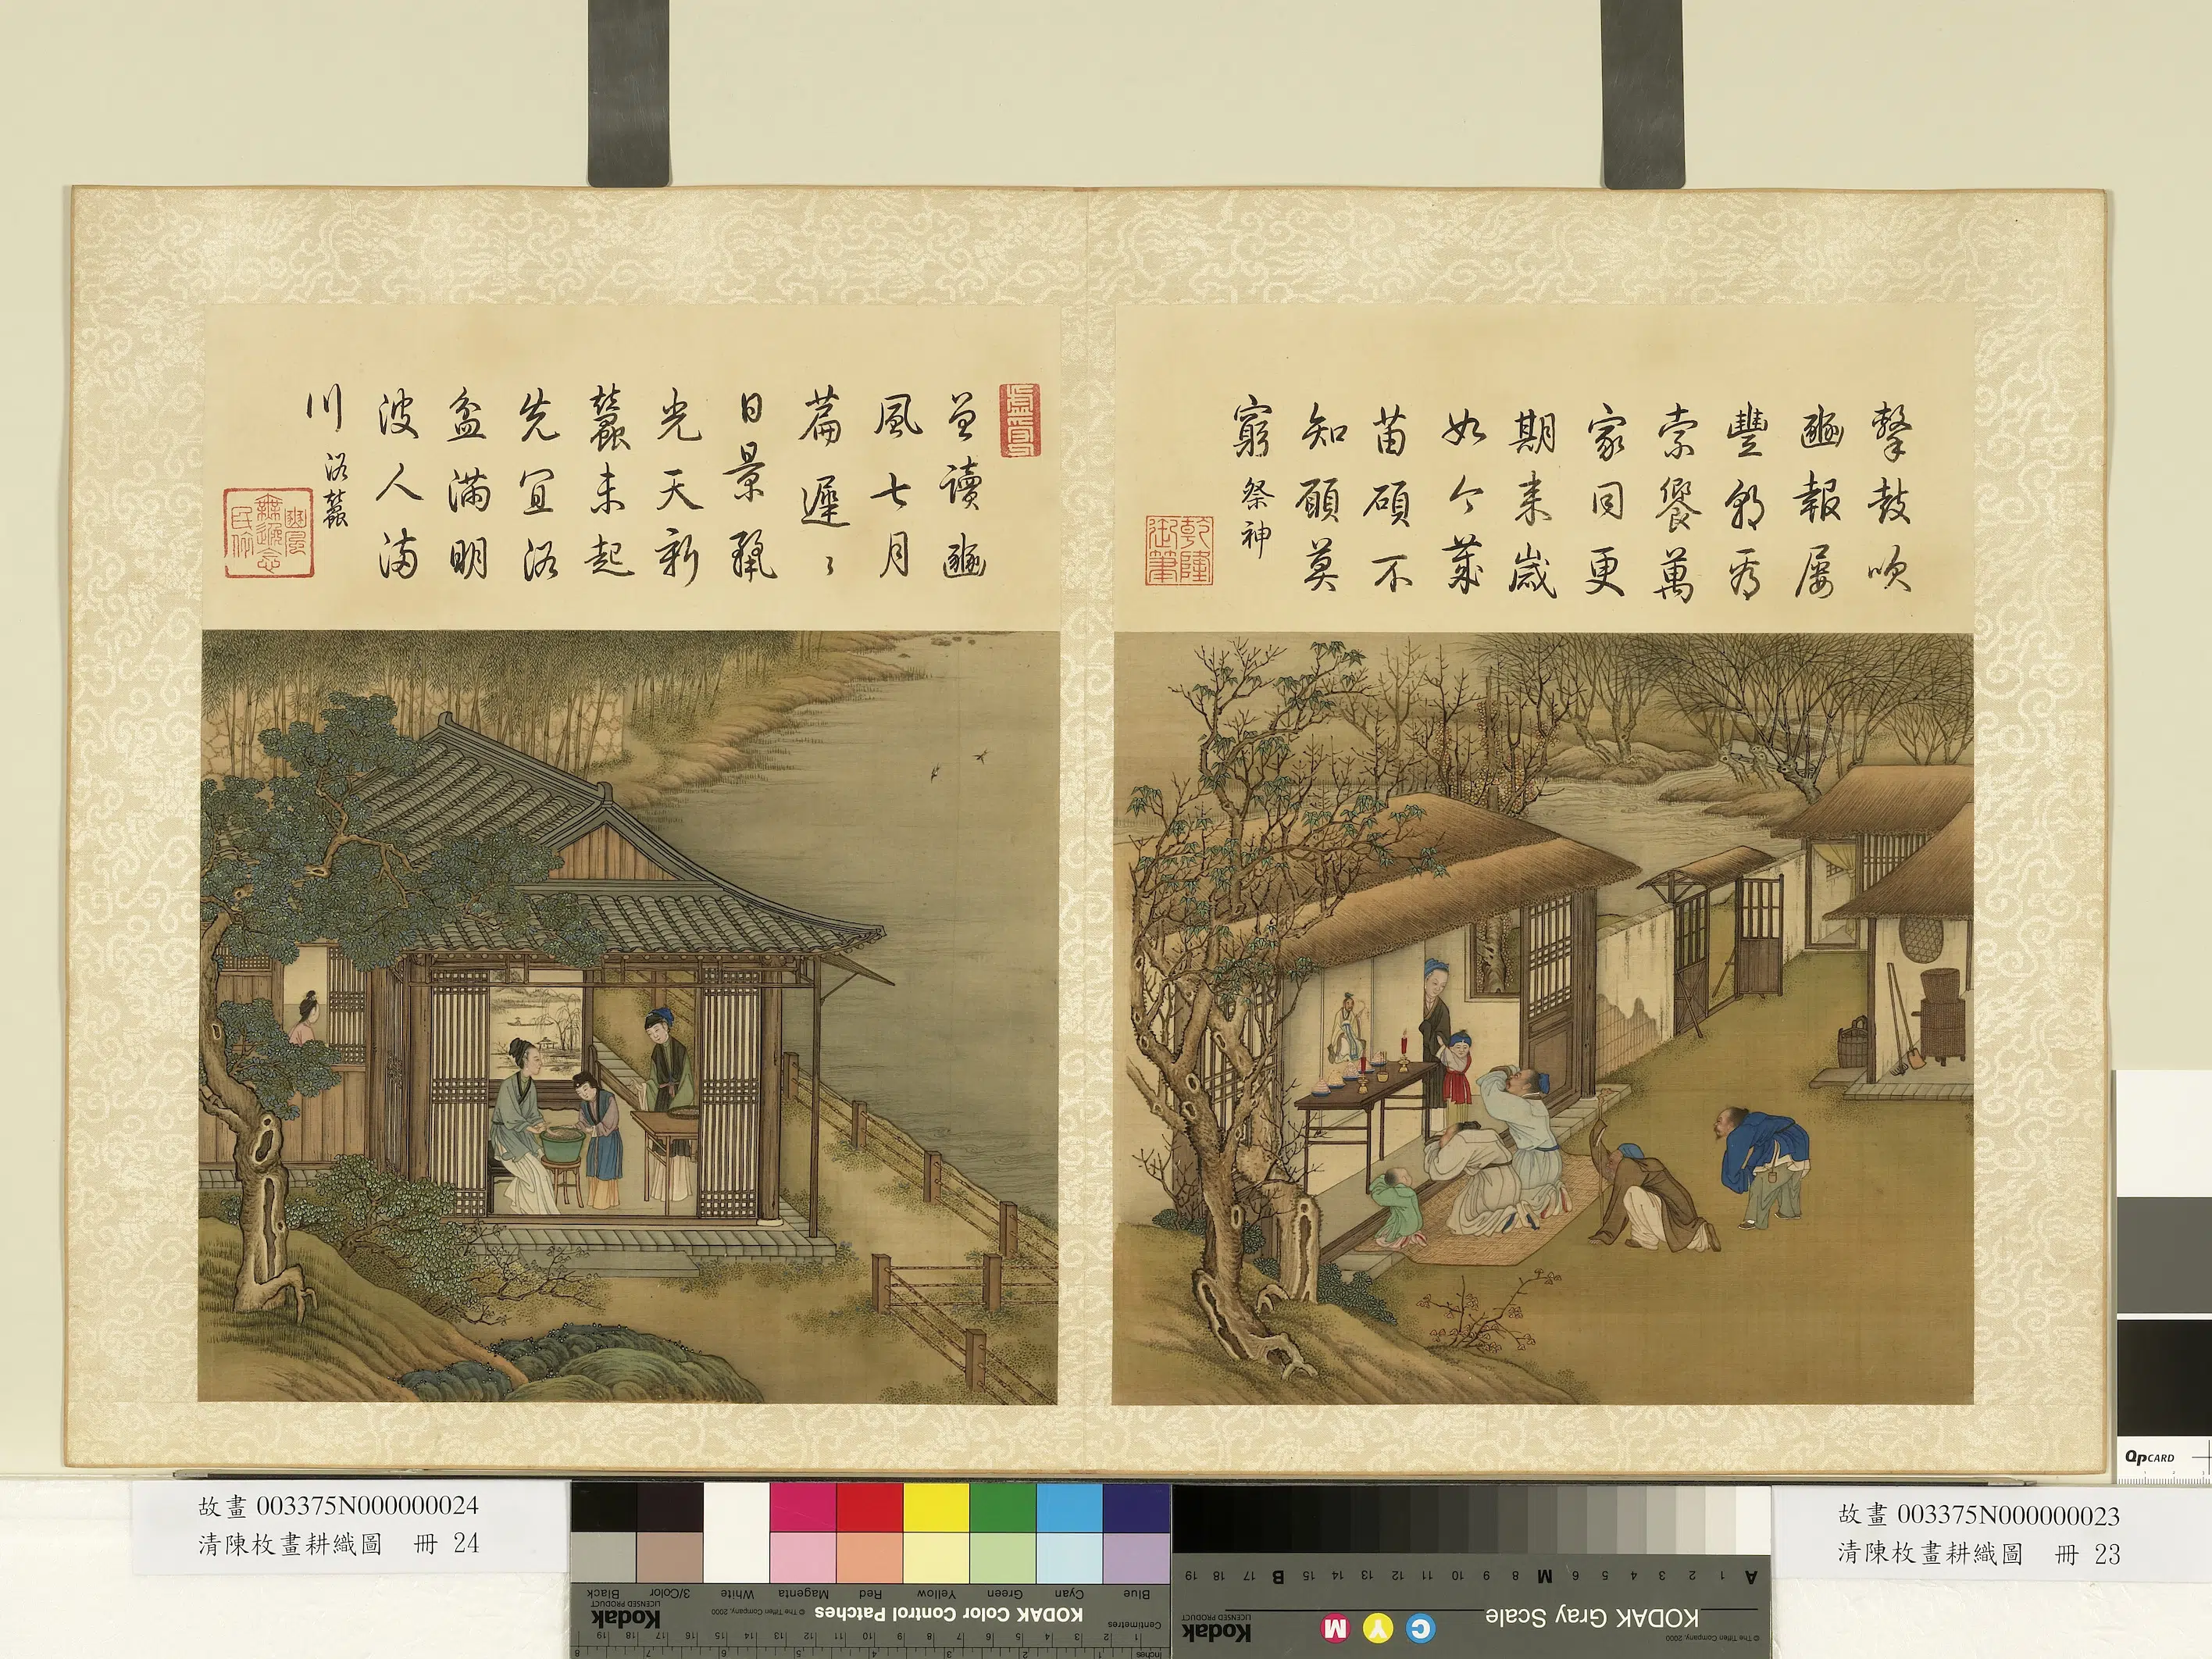 擊鼓吹
豳報屢
豐
索饗萬
家同更
期來歲
如今歲
苗碩不
知願莫
窮 祭神
乾隆
御筆
曾讀豳
風七月
篇遲〻
日景麗
光天新
蠶未起
先宜浴
盆滿明
波人滿
川 浴蠶
豳風
無逸念
民依
故畫 003375N000000024
清陳枚畫耕織圖 冊 24
故畫 003375N000000023
清陳枚畫耕織圖 冊 23
Blue
Cyan
Green
Yellow
Red
Magenta
White
3/Color
Black
Centimetres
KODAK Color Control Patches
© The Tiffen Company, 2000
Kodak
LICENSED PRODUCT
Inches
A 1 2 3 4 5 6 M 8 9 10 11 12 13 14 15 B 17 18 19
KODAK Gray Scale
C Y M
Kodak
LICENSED PRODUCT
© The Tiffen Company, 2000
QPCARD